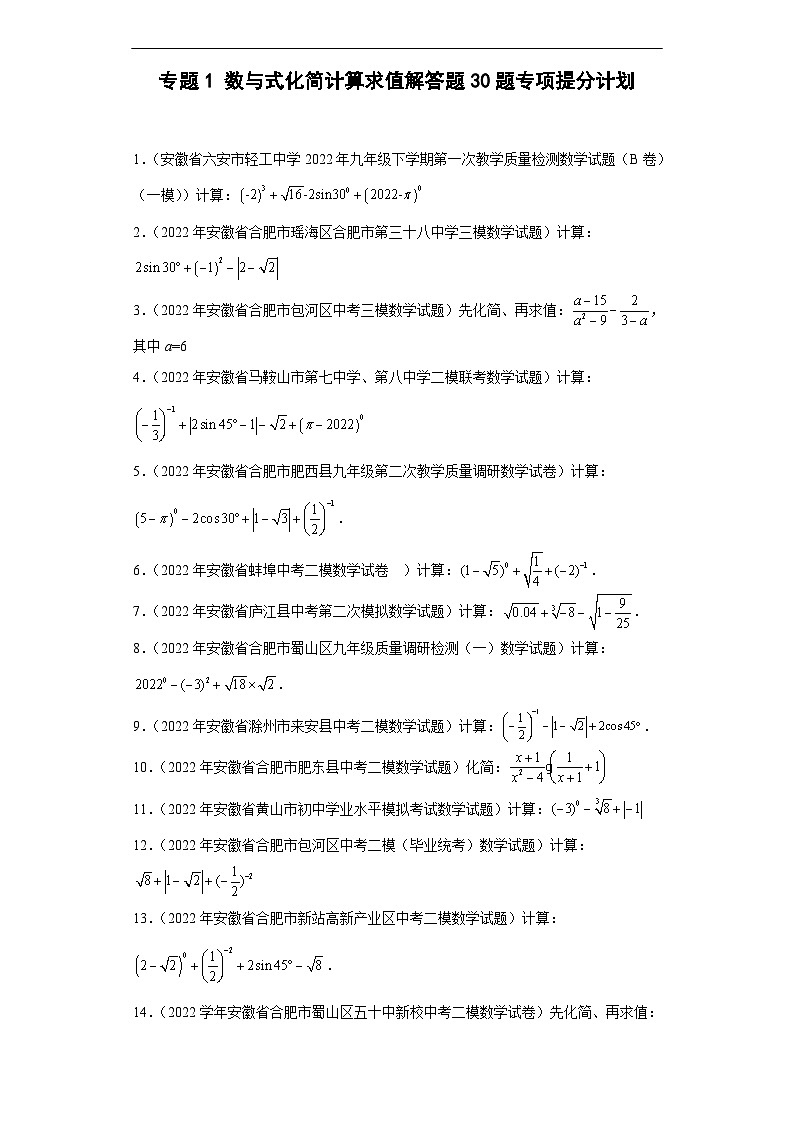 专题1 数与式化简计算求值解答题30题专项提分计划
1.(安徽省六安市轻工中学2022年九年级下学期第一次教学质量检测数学试题(B卷)
(一模))计算:(-2)³+√16-2sin30⁰+(2022-π)⁰
2.(2022年安徽省合肥市瑶海区合肥市第三十八中学三模数学试题)计算:
2sin30°+(−1)²−|2−√2|
3.(2022年安徽省合肥市包河区中考三模数学试题)先化简、再求值:(a−15)/(a²−9)−2/(3−a),
其中a=6
4.(2022年安徽省马鞍山市第七中学、第八中学二模联考数学试题)计算:
(−1/3)⁻¹+|2sin45°−1|−√2+(π−2022)⁰
5.(2022年安徽省合肥市肥西县九年级第二次教学质量调研数学试卷)计算:
(5−π)⁰−2cos30°+|1−√3|+(1/2)⁻¹.
6.(2022年安徽省蚌埠中考二模数学试卷 )计算:(1−√5)⁰+√(1/4)+(−2)⁻¹.
7.(2022年安徽省庐江县中考第二次模拟数学试题)计算:√0.04+∛−8−√(1−9/25).
8.(2022年安徽省合肥市蜀山区九年级质量调研检测(一)数学试题)计算:
2022⁰−(−3)²+√18×√2.
9.(2022年安徽省滁州市来安县中考二模数学试题)计算:(−1/2)⁻¹−|1−√2|+2cos45°.
10.(2022年安徽省合肥市肥东县中考二模数学试题)化简:(x+1)/(x²−4)g(1/(x+1)+1)
11.(2022年安徽省黄山市初中学业水平模拟考试数学试题)计算:(−3)⁰−∛8+|−1|
12.(2022年安徽省合肥市包河区中考二模(毕业统考)数学试题)计算:
√8+|1−√2|+(−1/2)⁻²
13.(2022年安徽省合肥市新站高新产业区中考二模数学试题)计算:
(2−√2)⁰+(1/2)⁻²+2sin45°−√8.
14.(2022学年安徽省合肥市蜀山区五十中新校中考二模数学试卷)先化简、再求值: